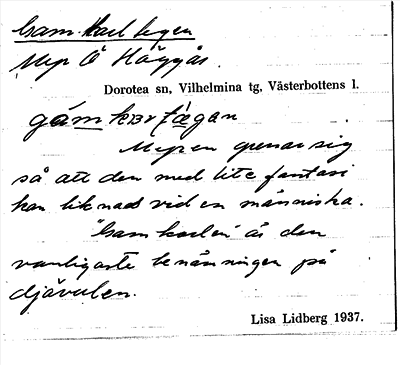 Gam-karl-tegen
Myr Ö Häggås.
Dorotea sn, Vilhelmina tg, Västerbottens l.
Myren grenar sig
så att den med lite fantasi
kan liknas vid en människa.
"Gamkarlen" är den
vanligaste benämningen på
djävulen.
Lisa Lidberg 1937.